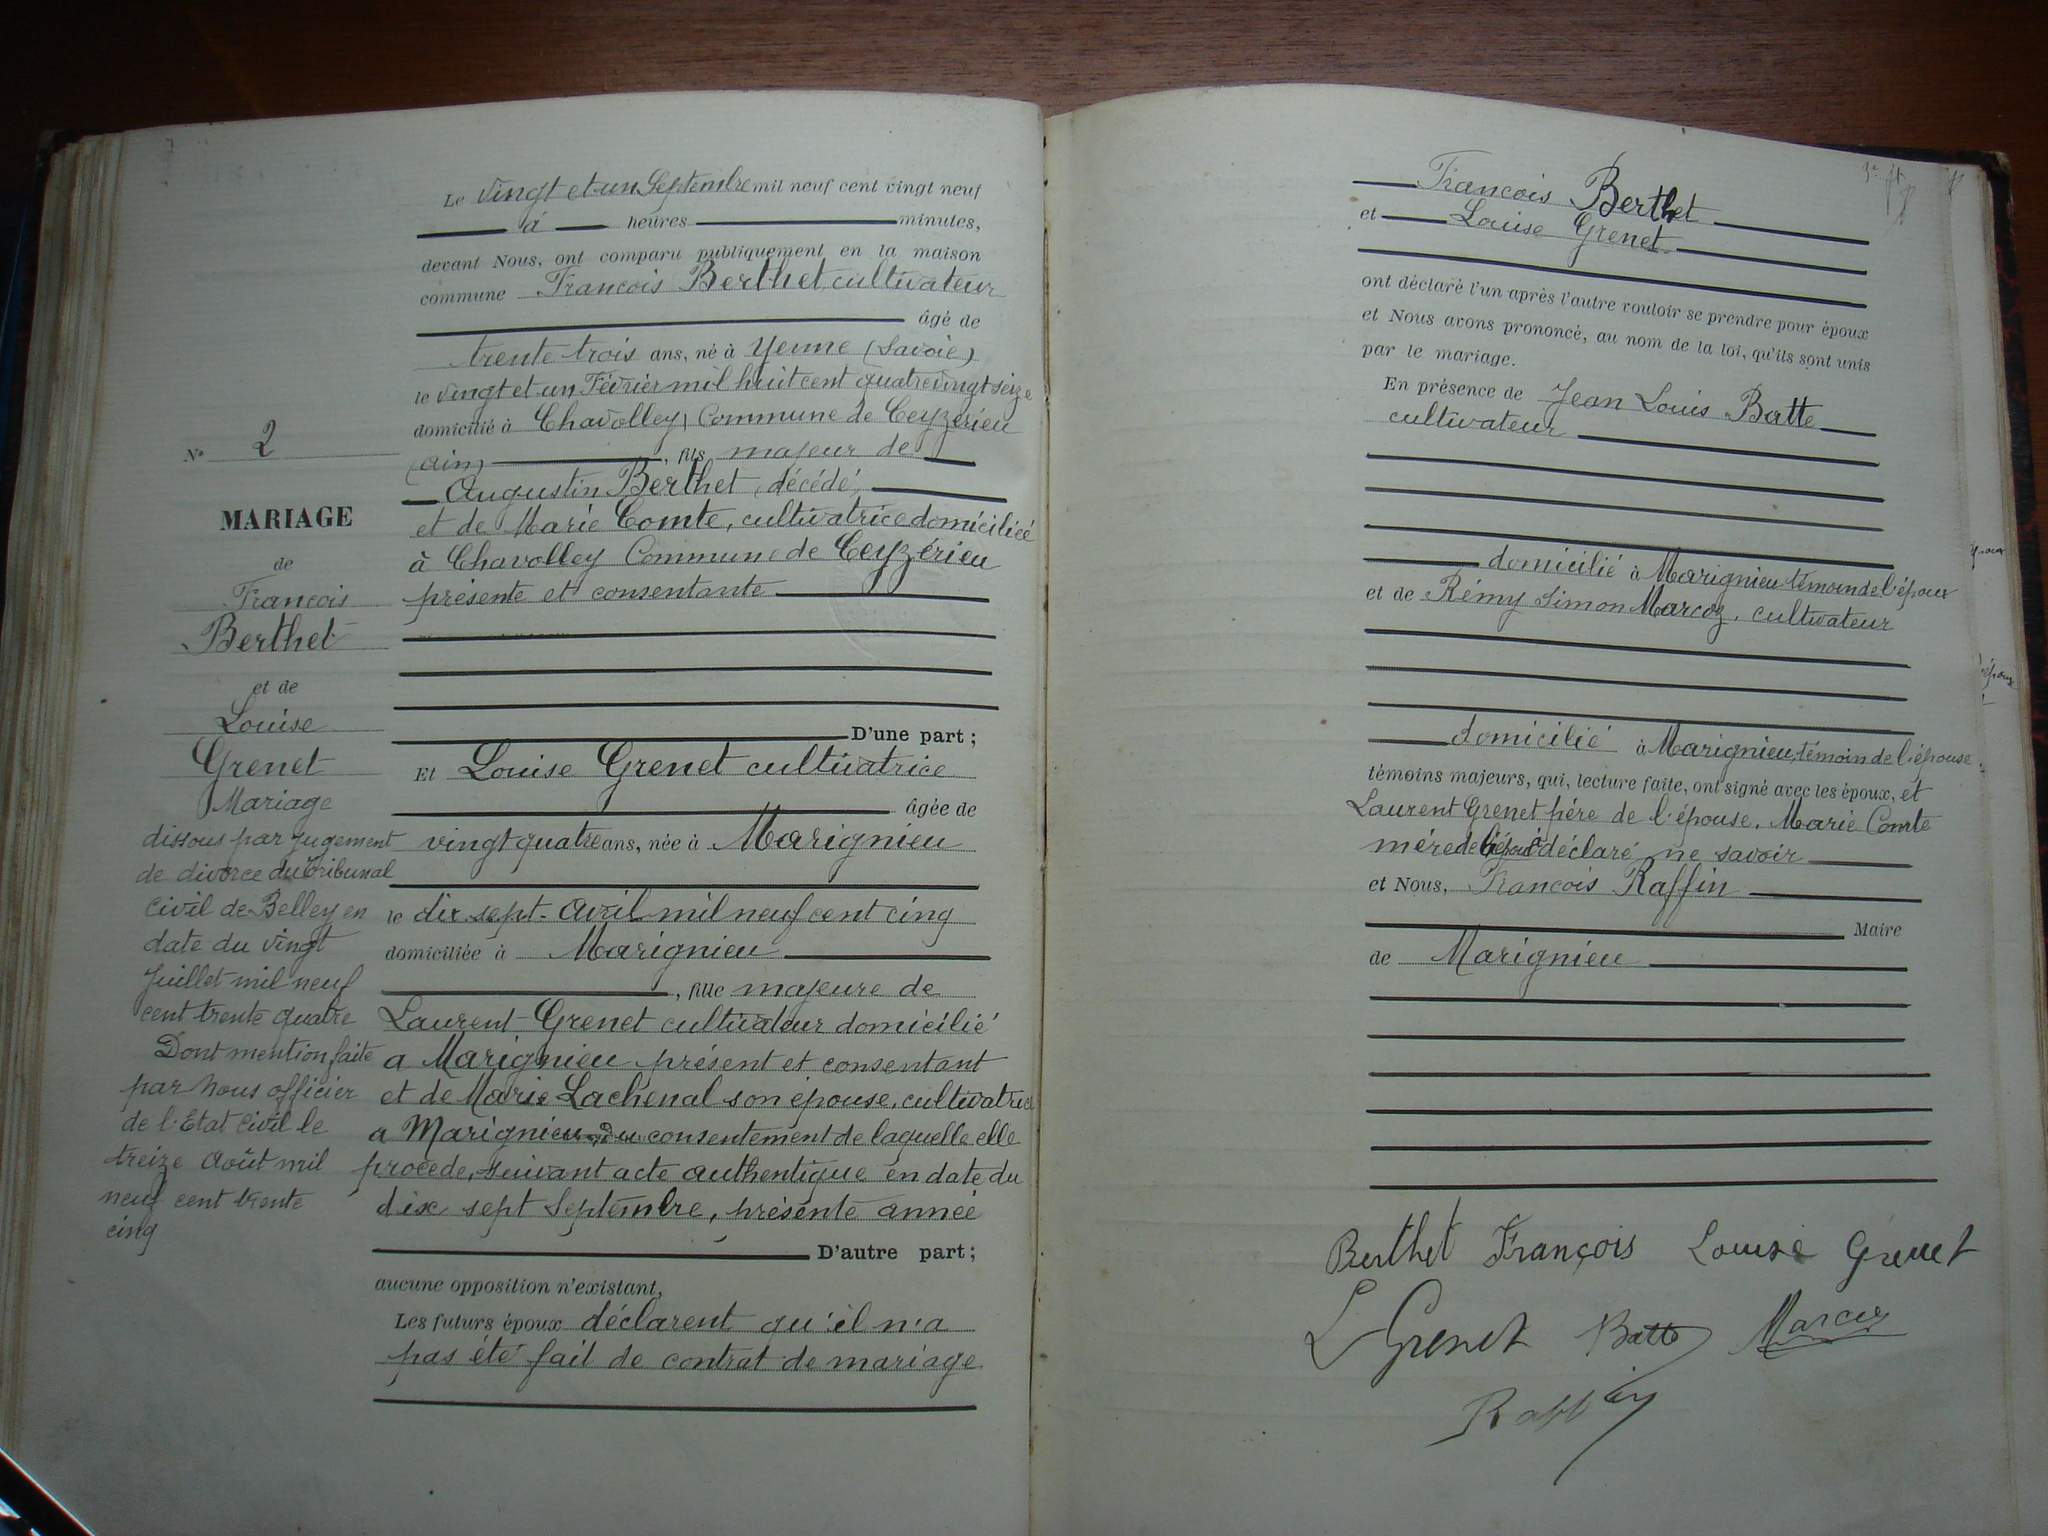 N° 2
MARIAGE
de
François
Berthet
et de
Louise
Grenet
Mariage
dissous par jugement
de divorce du Tribunal
civil de Belley en
date du vingt
Juillet mil neuf
cent trente quatre
Dont mention faite
par Nous officier
de l'Etat Civil le
treize Août mil
neuf cent trente
cinq
Le vingt et un Septembre mil neuf cent vingt neuf
à heures minutes,
devant Nous, ont comparu publiquement en la maison
commune François Berthet, cultivateur
âgé de
trente trois ans, né à Yenne (Savoie)
le vingt et un Février mil huit cent quatre vingt seize
domicilié à Chavolley, Commune de Ceyzérieu
(Ain) , fils majeur de
Augustin Berthet, décédé,
et de Marie Comte, cultivatrice domiciliée
à Chavolley Commune de Ceyzérieu
présente et consentante
D'une part ;
Et Louise Grenet cultivatrice
âgée de
vingt quatre ans, née à Marignieu
le dix sept Avril mil neuf cent cinq
domiciliée à Marignieu
, fille majeure de
Laurent Grenet cultivateur domicilié
a Marignieu présent et consentant
et de Marie Lachenal son épouse, cultivatrice
a Marignieu du consentement de laquelle elle
procède, suivant acte authentique en date du
dix sept Septembre, présente année
D'autre part ;
aucune opposition n'existant,
Les futurs époux déclarent qu'il n'a
pas été fait de contrat de mariage
François Berthet
et Louise Grenet
ont déclaré l'un après l'autre vouloir se prendre pour époux
et Nous avons prononcé, au nom de la loi, qu'ils sont unis
par le mariage.
En présence de Jean Louis Batte
cultivateur
domicilié à Marignieu témoin de l'époux
et de Rémy Simon Marcoz, cultivateur
domicilié à Marignieu, témoin de l'épouse
témoins majeurs, qui, lecture faite, ont signé avec les époux, et
Laurent Grenet père de l'épouse. Marie Comte
mère de l'époux déclaré ne savoir
et Nous, François Raffin
Maire
de Marignieu
Berthet François Louise Grenet
L Grenet Batte Marcoz
Raffin